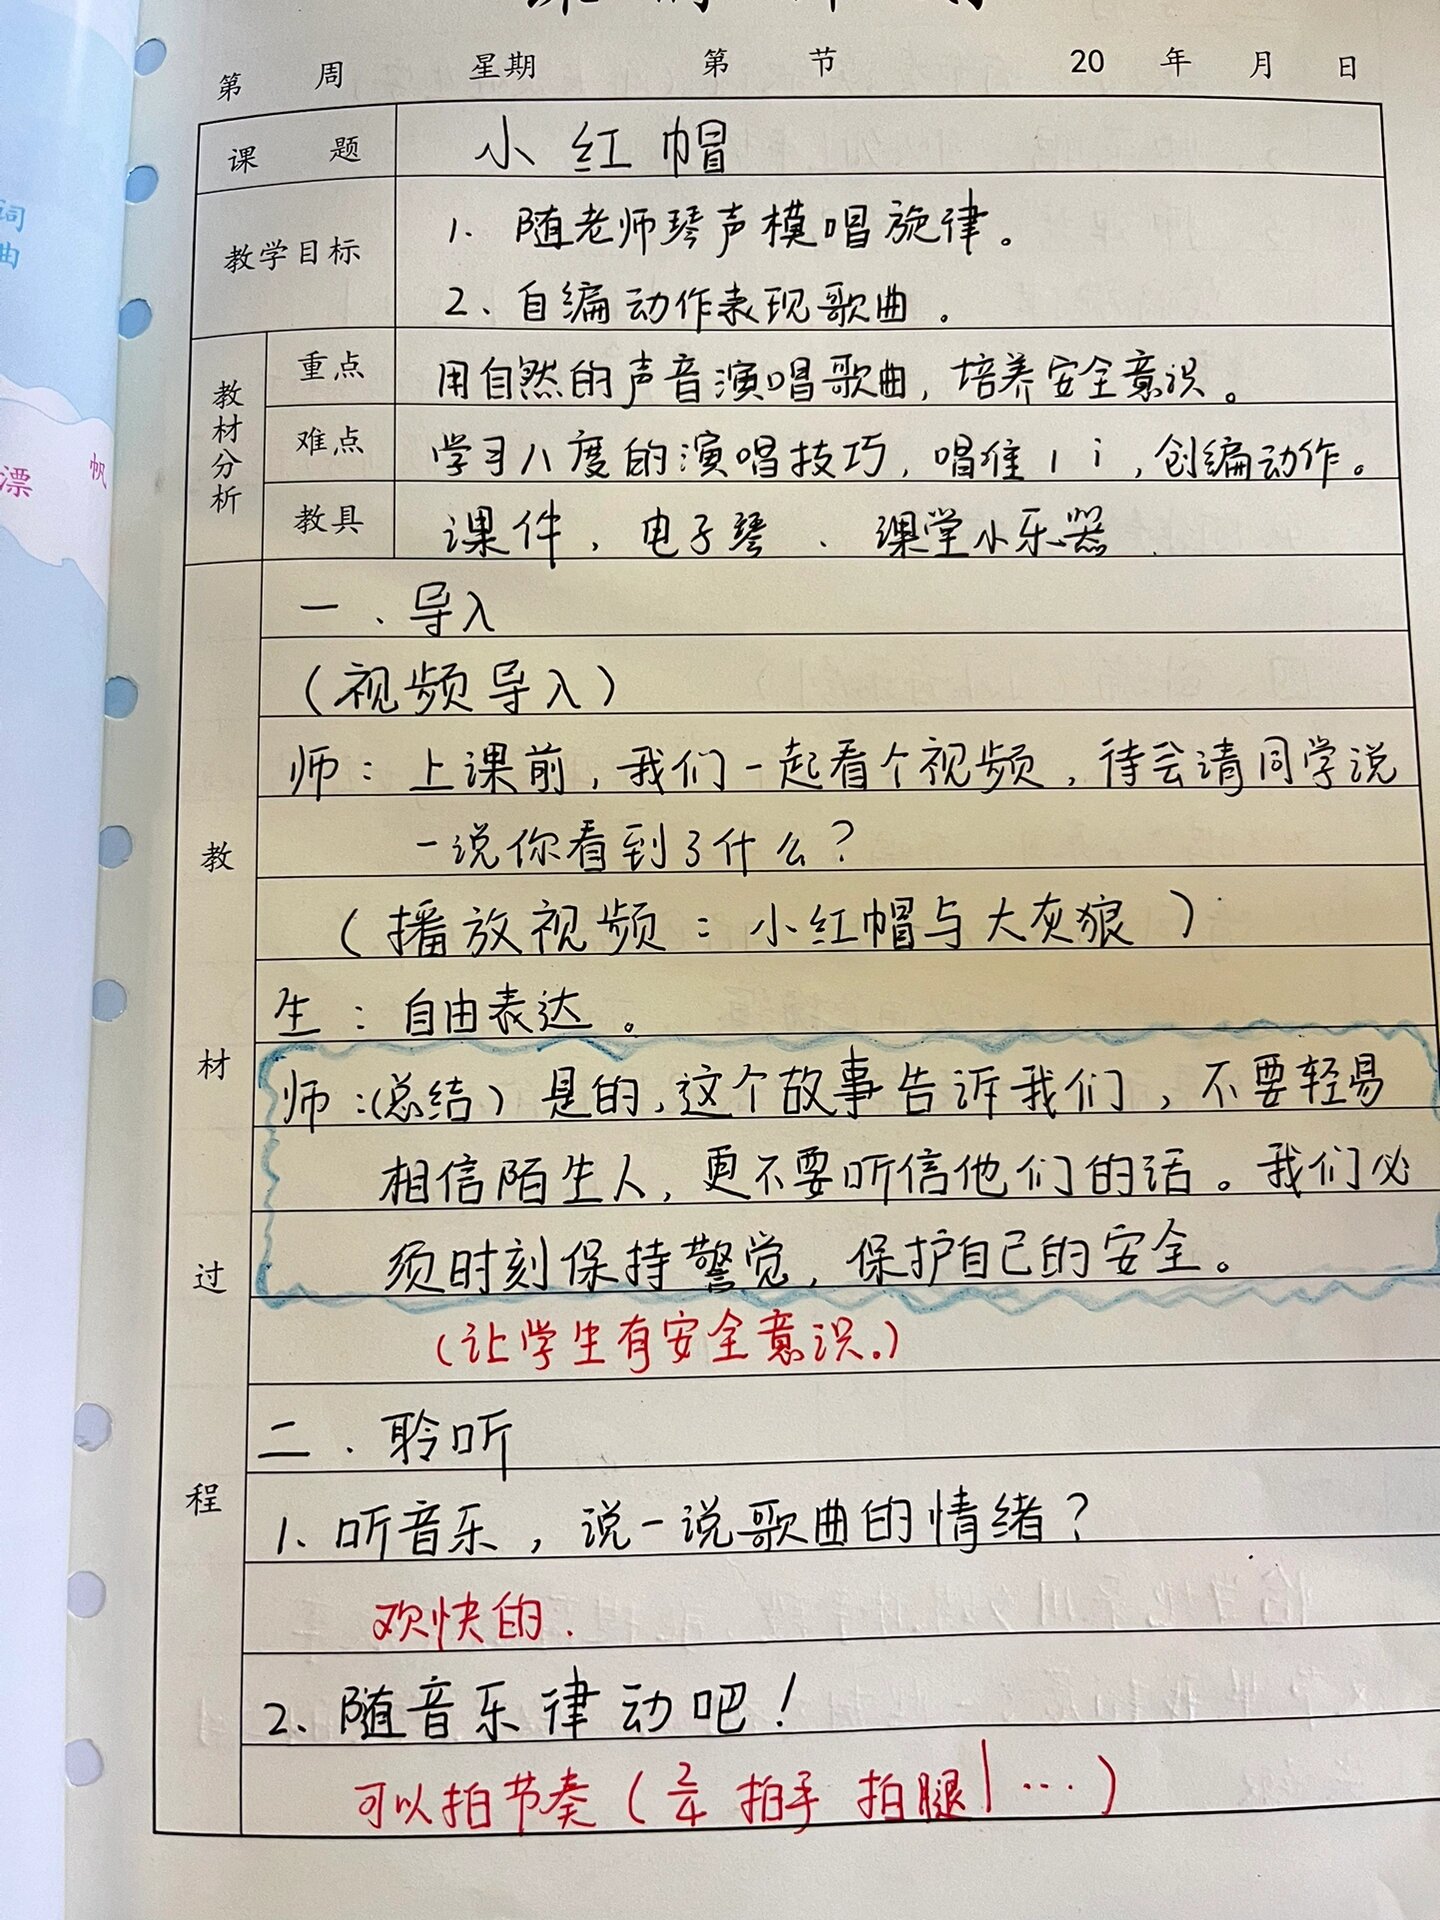 第 周 星期 第 节 20 年 月 日
课 题 小红帽
教学目标 1. 随老师琴声模唱旋律。
2、自编动作表现歌曲。
教材分析
重点 用自然的声音演唱歌曲，培养安全意识。
难点 学习八度的演唱技巧，唱准 1 i，创编动作。
教具 课件，电子琴、课堂小乐器
教材过程
一．导入
（视频导入）
师：上课前，我们一起看个视频，待会请同学说
一说你看到了什么？
（播放视频：小红帽与大灰狼）
生：自由表达。
师：（总结）是的，这个故事告诉我们，不要轻易
相信陌生人，更不要听信他们的话。我们必
须时刻保持警觉，保护自己的安全。
（让学生有安全意识。）
二．聆听
1. 听音乐，说一说歌曲的情绪？
欢快的．
2、随音乐律动吧！
可以拍节奏（2/4 拍手 拍腿|…）
词
曲
漂 帆